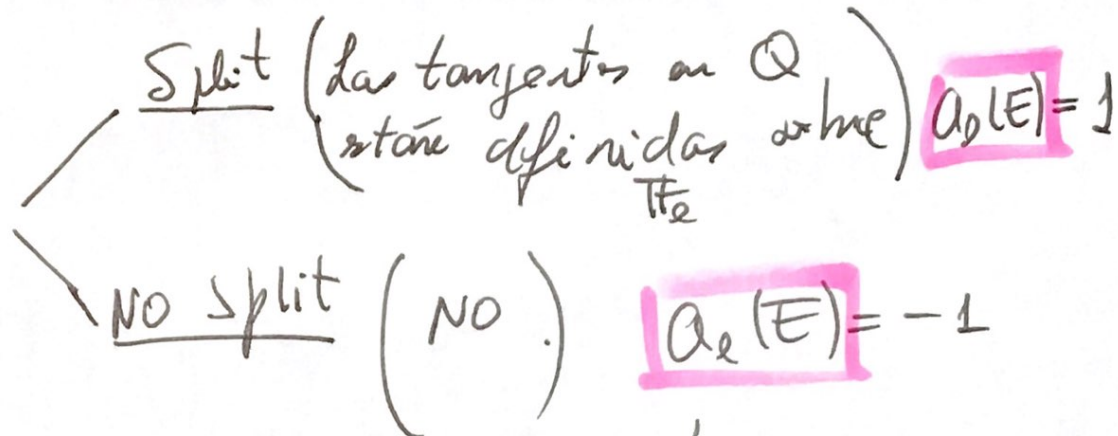 Split (Las tangentes en Q
están definidas sobre) aℓ(E) = 1
𝔽ℓ
NO split (NO.) aℓ(E) = -1